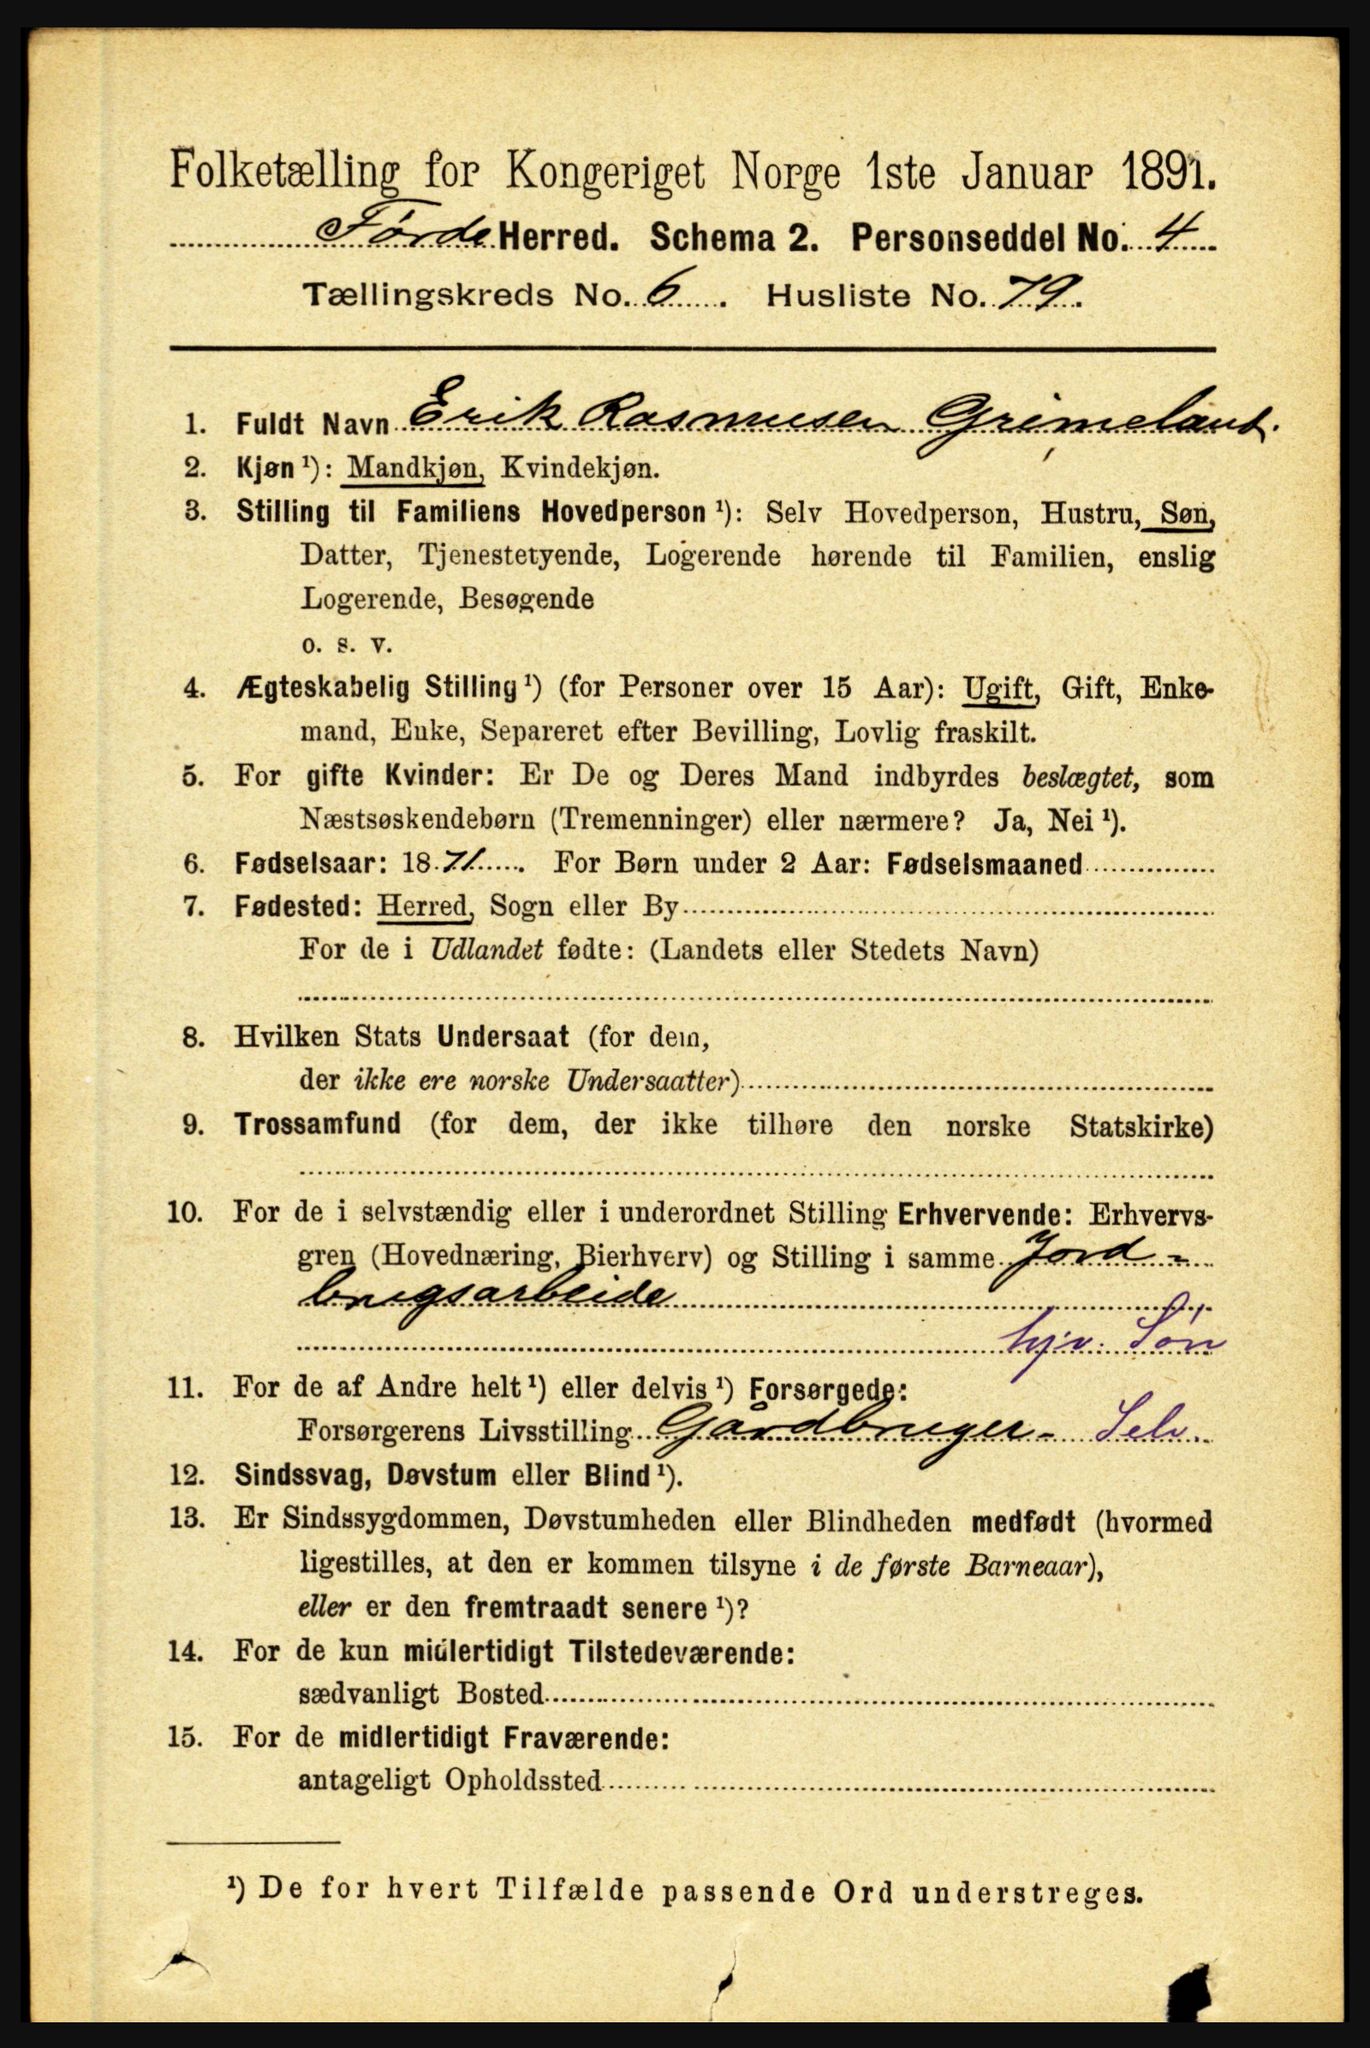 Folketælling for Kongeriget Norge 1ste Januar 1891.
Førde Herred. Schema 2. Personseddel No. 4
Tællingskreds No. 6. Husliste No. 79.
1. Fuldt Navn Erik Rasmusen Grimeland.
2. Kjøn ¹): Mandkjøn, Kvindekjøn.
3. Stilling til Familiens Hovedperson ¹): Selv Hovedperson, Hustru, Søn,
Datter, Tjenestetyende, Logerende hørende til Familien, enslig
Logerende, Besøgende
o. s. v.
4. Ægteskabelig Stilling ¹) (for Personer over 15 Aar): Ugift, Gift, Enke-
mand, Enke, Separeret efter Bevilling, Lovlig fraskilt.
5. For gifte Kvinder: Er De og Deres Mand indbyrdes beslægtet, som
Næstsøskendebørn (Tremenninger) eller nærmere? Ja, Nei ¹).
6. Fødselsaar: 1871. For Børn under 2 Aar: Fødselsmaaned
7. Fødested: Herred, Sogn eller By
For de i Udlandet fødte: (Landets eller Stedets Navn)
8. Hvilken Stats Undersaat (for dem,
der ikke ere norske Undersaatter)
9. Trossamfund (for dem, der ikke tilhøre den norske Statskirke)
10. For de i selvstændig eller i underordnet Stilling Erhvervende: Erhvervs-
gren (Hovednæring, Bierhverv) og Stilling i samme Jord-
brugsarbeide
hjv. Søn
11. For de af Andre helt ¹) eller delvis ¹) Forsørgede:
Forsørgerens Livsstilling Gårdbruger - Selv.
12. Sindssvag, Døvstum eller Blind ¹).
13. Er Sindssygdommen, Døvstumheden eller Blindheden medfødt (hvormed
ligestilles, at den er kommen tilsyne i de første Barneaar),
eller er den fremtraadt senere ¹)?
14. For de kun midlertidigt Tilstedeværende:
sædvanligt Bosted
15. For de midlertidigt Fraværende:
antageligt Opholdssted
¹) De for hvert Tilfælde passende Ord understreges.